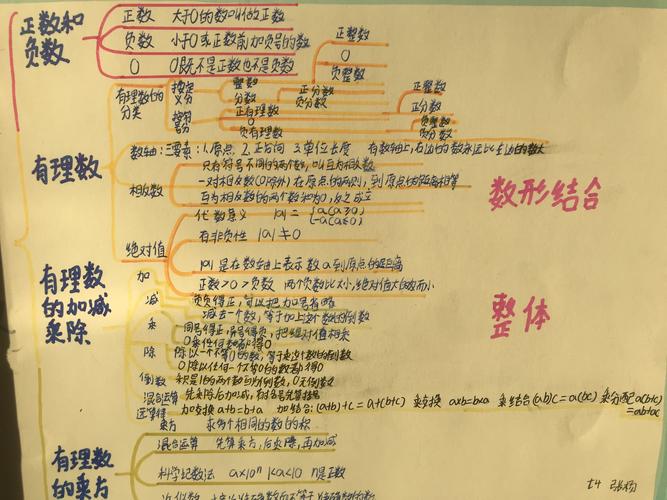 正数和
负数
正数 大于0的数叫做正数
负数 小于0或正数前加负号的数
0 0既不是正数也不是负数
有理数
有理数的
分类
按定
义分
整数
正整数
0
负整数
分数
正分数
负分数
正有理数
正整数
正分数
0
负有理数
负整数
负分数
数轴:三要素:1.原点 2.正方向 3.单位长度 在数轴上,右边的数永远比左边的数大
相反数
只有符号不同的两个数,叫互为相反数
一对相反数(0除外)在原点的两侧,到原点的距离相等
互为相反数的两个数和为0,反之成立
绝对值
代数意义 |a|={a(a≥0)
-a(a≤0)
有非负性 |a|≠0
|a|是在数轴上表示数a到原点的距离
正数>0>负数 两个负数比大小,绝对值大的反而小
数形结合
有理数
的加减
乘除
加
减
负负得正,可以把加号省略
减去一个数,等于加上这个数的
乘
同号得正,异号得负,把绝对值相乘
0乘任何数都得0
除
除以一个不等0的数,等于乘这个数的倒数
0除以任何一个不等0的数都得0
倒数 乘积是1的两个数互为倒数,0无倒数
混合运算 先乘除后加减,有括号先算括号
运算律 加交换 a+b=b+a 加结合:(a+b)+c=a+(b+c) 乘交换 axb=bxa 乘结合(ab)c=a(bc) 乘分配 a(b+c)
=ab+ac
整体
有理数
的乘方
乘方 求n个相同的数的积
混合运算 先算乘方,后乘除,再加减
科学记数法 a×10ⁿ 1<a<10 n是正数
近似数
张杨